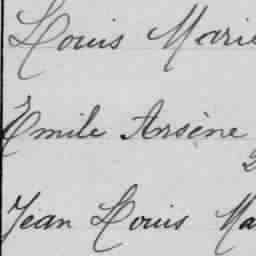 Louis Marie
Emile Arsène
Jean Louis Ma